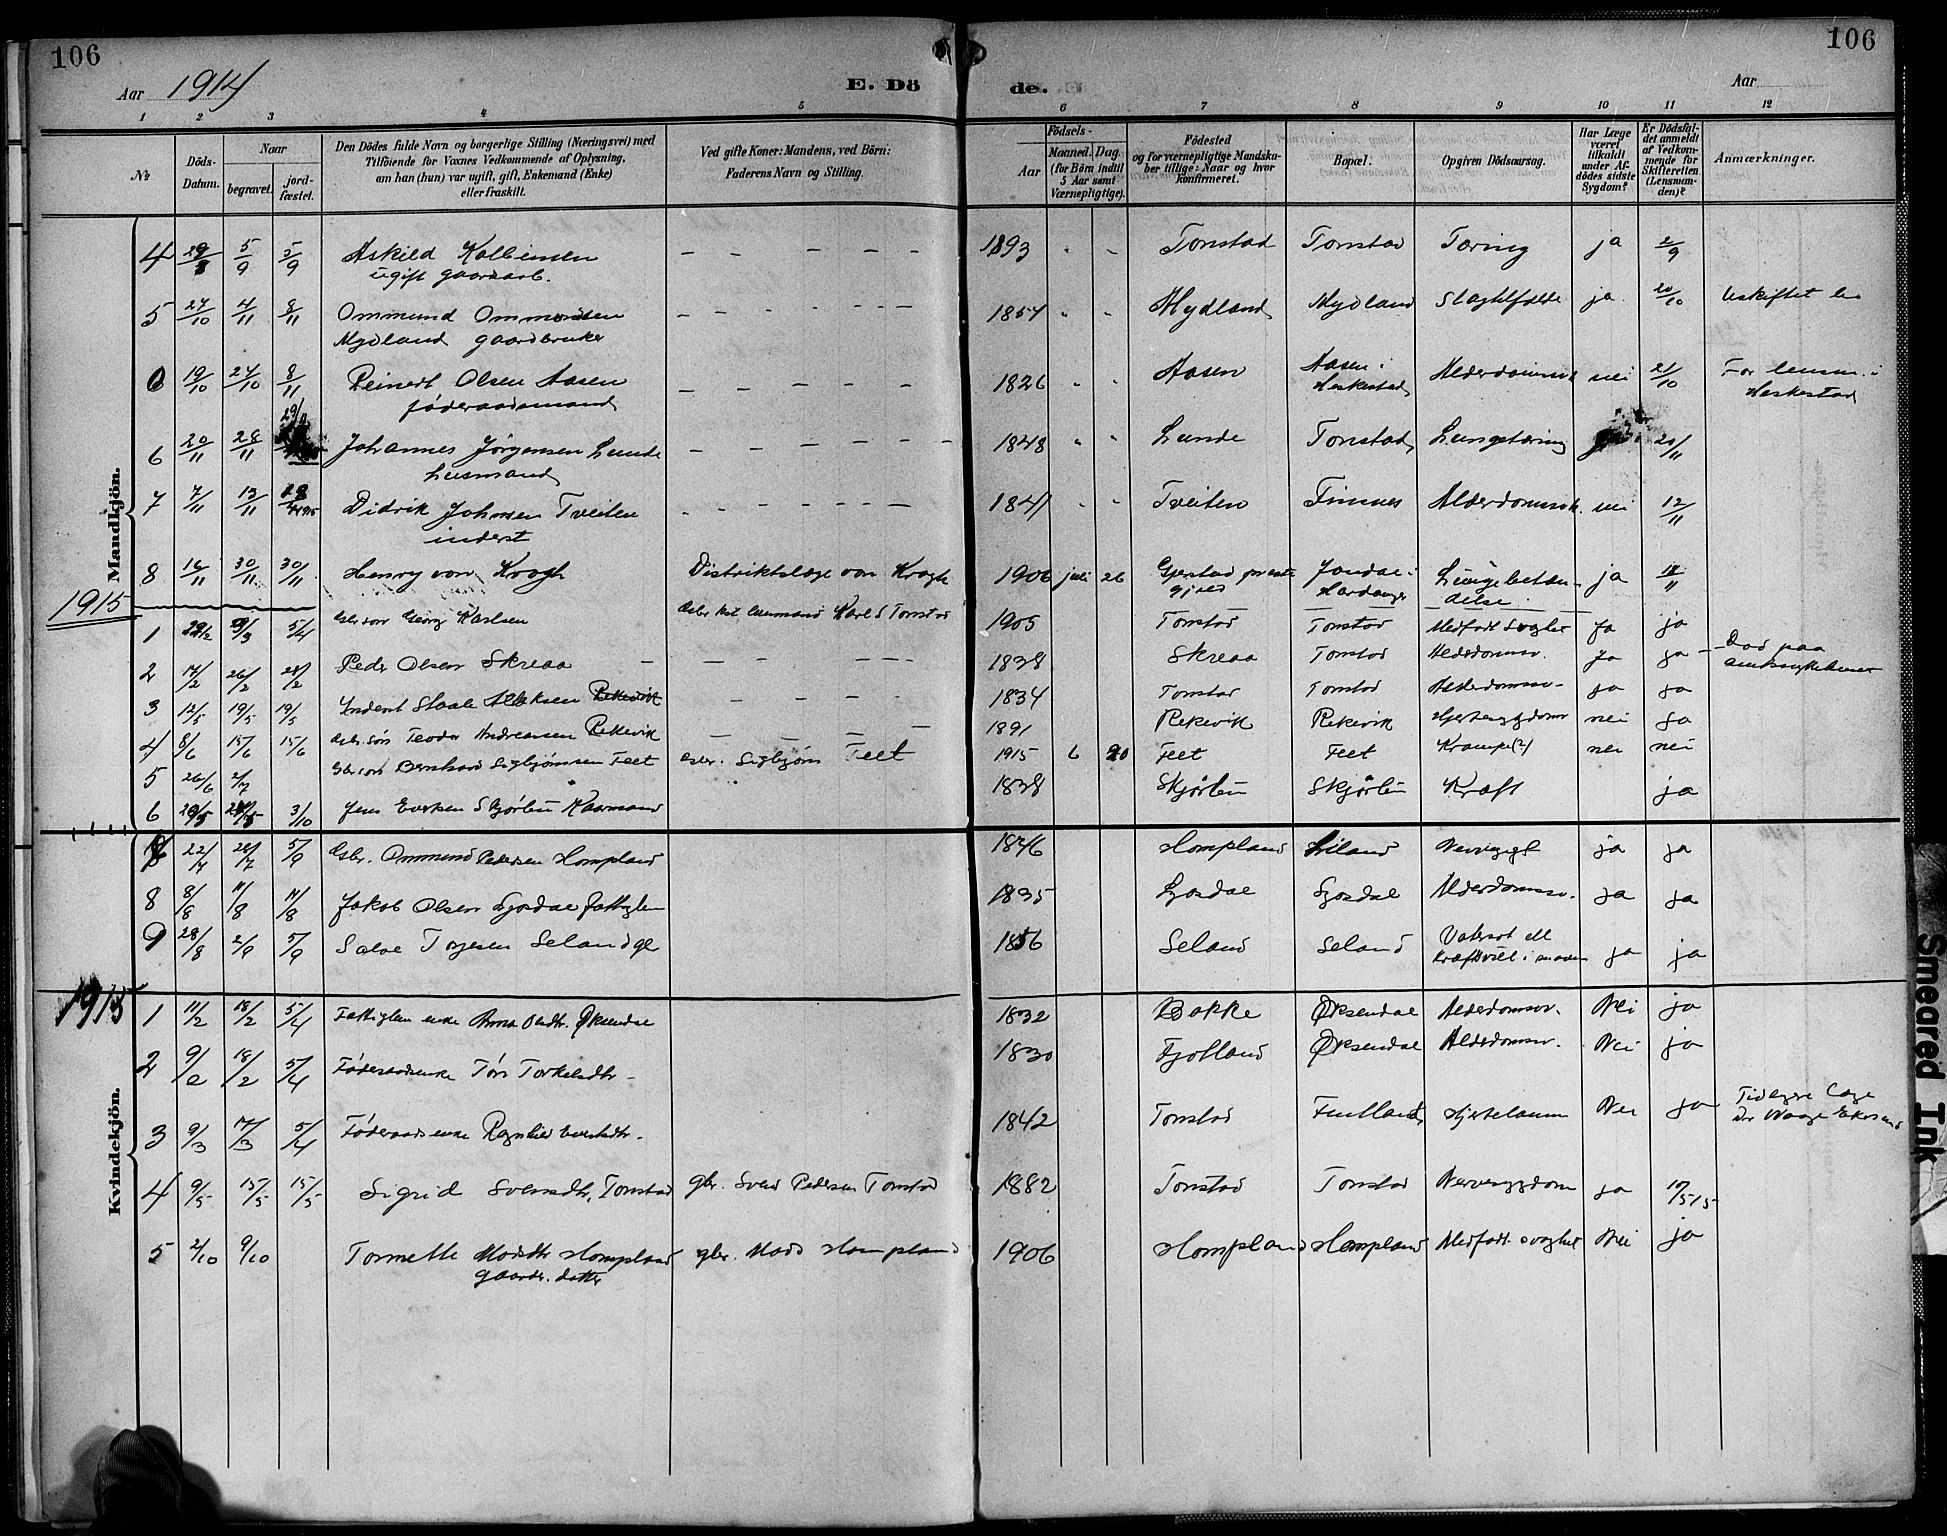 106
106
Aar 1914
E. Dö
de.
Aar
1 2 3 4 5 6 7 8 9 10 11 12
№
Döds-Datum.
Naar
begravet.
jord-fæstet.
Den Dödes fulde Navn og borgerlige Stilling (Næringsvei) med
Tilföiende for Voxnes Vedkommende af Oplysning,
om han (hun) var ugift, gift, Enkemand (Enke)
eller fraskilt.
Ved gifte Koner: Mandens, ved Börn:
Faderens Navn og Stilling.
Födsels-
Aar
Maaned. Dag
(for Börn indtil
5 Aar samt
Værnepligtige).
Födested
og for værnepligtige Mandska-
ber tillige: Naar og hvor
konfirmeret.
Bopæl.
Opgiven Dödsaarsag.
Har Læge
været
tilkaldt
under Af-
dödes sidste
Sygdom?
Er Dödsfal-
det anmeldt
af Vedkom-
mende for
Skifteretten
(Lensman-
den)?
Anmærkninger.
Mandkjön.
4 29/8 5/9 5/9 Askild Kolbensen - - - - - 1893 " " Tonstad Tonstad Tæring ja 2/9
ugift gaardsarb.
5 27/10 4/11 8/11 Ommund Ommundsen - - - - - - 1854 " " Mydland Mydland Slagtilfælde ja 20/10 Uskiftet bo
Mydland gaardbruker
6 19/10 27/10 8/11 Reinert Olsen Aasen - - - - - 1826 " " Aasen Aasen i Heskestad Alderdomssv. nei 21/10 For lensm. i
føderaadsmand Heskestad
29/11
6 20/11 28/11 Johannes Jørgensen Lunde - - - - - - 1848 " " Lunde Tonstad Lungetæring 20/11
husmand
7 7/11 13/11 Didrik Johnsen Tveiten - - - - - - 1841 " " Tveiten Finnes Alderdomssv. nei 12/11
inderst
8 16/11 30/11 30/11 Henry von Krogh Distriktslæge von Krogh 1906 juli 26 Gjerstad præste Jondal i Lungebetæn- ja 18/11
gjeld Hardanger delse
1915
1 5/4 Gbr søn Georg Karlsen Karl S Tonstad 1905 Tonstad Tonstad Medfødt svaghet Ja ja
2 17/2 26/2 28/2 Peder Olsen Skreaa - - - - - - 1838 Skreaa Tonstad Alderdomsv. Ja ja - Død paa
amtssykehuset
3 12/5 19/5 19/5 Inderst Staale Alleksen Rekevik - - - 1834 Tonstad Tonstad Alderdomsv- ja ja
4 8/6 15/6 15/6 Gbr. søn Teodor Andreassen Rekevik - - - - 1891 Rekevik Rekevik Hjertesygdom nei ja
5 26/6 2/7 Gbr søn Bernhard Sigbjørnsen Feet Gbr. Sigbjørn Feet 1915 6 20 Feet Feet Krampe(?) nei nei
6 3/10 Jens Evertsen Skjørlii Kaarmand 1838 Skjørlii Skjørlii Kræft ja
22/7 28/7 5/9 Gbr. Ommund Pedersen Hompland 1846 Hompland Liland Nervesygd ja ja
8 8/8 11/8 11/8 Jakob Olsen Ljosdal fattiglem 1835 Ljosdal Ljosdal Alderdomssv. ja ja
9 28/8 2/9 5/9 Salve Torjesen Seland gl 1856 Seland Seland Vatersot ell
kræftsvull i maven ja ja
1915
Kvindekjön.
1 11/2 18/2 5/4 Fattiglem enke Anna Olsdtr. Øksendal 1832 Bakke Øksendal Alderdomsv. Nei ja
2 9/2 18/2 5/4 Føderaadsenke Tøri Torkelsdtr - 1830 Fjotland Øksendal Alderdomsv. Nei ja
3 9/3 17/3 5/4 Føderaadsenke Ragnhild Evertsdtr. 1842 Tonstad Fintland Hjertelam Nei ja Tidligere Læge
Dr Waage Ekersund
4 9/5 15/5 15/5 Sigrid Svensdtr, Tonstad gbr. Svend Pedersen Tonstad 1882 Tonstad Tonstad Nervesygdom ja 17/5 15
5 2/10 9/10 Tormette Madsdtr Hompland gbr. Mads Hompland 1906 Hompland Hompland Medfødt svaghet Nei ja
gaardbr. datter
Smeared Ink